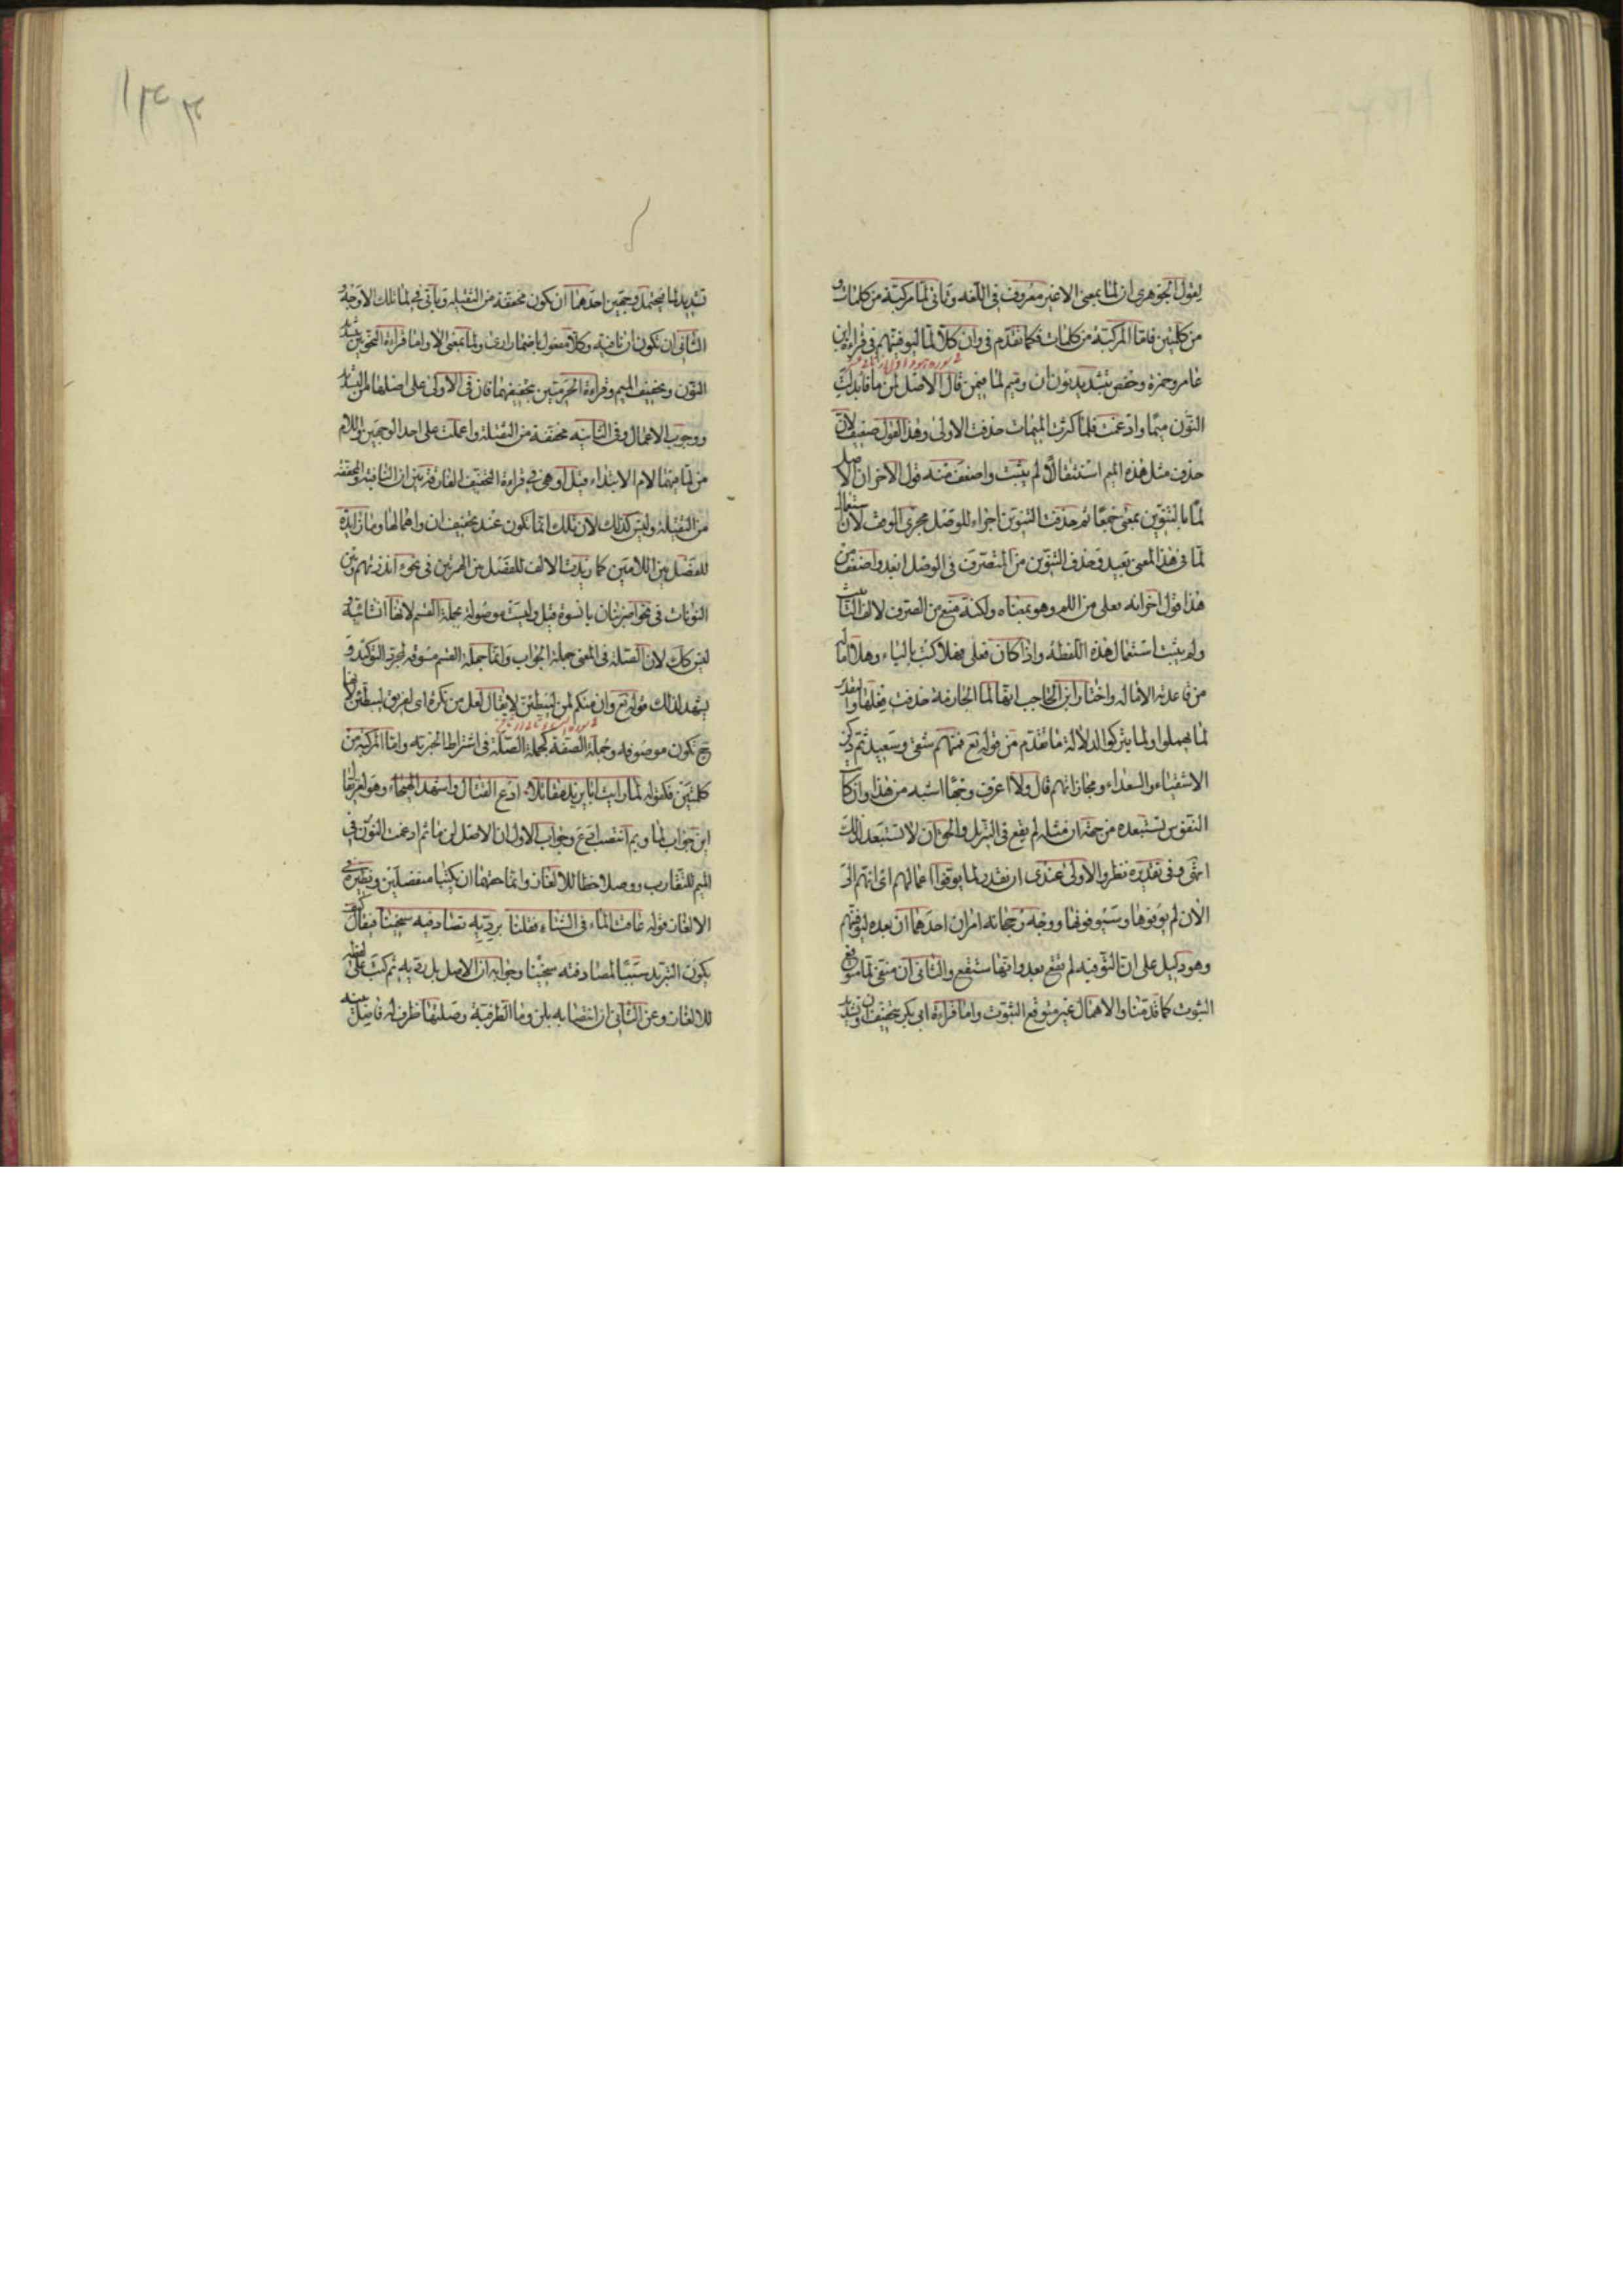 لقول الجوهري ان لما بمعنى الا غير معروف في اللغة وتأتي لما مركبة من كلمات و
من كلمتين فاما المركبة من كلمات فكما تقدم في وان كلا لما ليوفينهم في قراءة ابن
عامر وحمزة وحفص بتشديد نون ان وميم لما فيمن قال الاصل لمن ما فابدلت
النون ميما وادغمت فلما كثرت الميمات حذفت الاولى وهذا القول ضعيف لان
حذف مثل هذه الميم استثقالا لم يثبت واضعف منه قول الاخر ان الاصل
لما بالتنوين بمعنى جمعا ثم حذفت التنوين اجراء للوصل مجرى الوقف لان استعمال
لما في هذا المعنى بعيد وحذف التنوين من المتصرف في الوصل ابعد واضعف من
هذا قول اخر انه فعلى من اللم وهو بمعناه ولكنه منع من الصرف لالف التأنيث
ولم يثبت استعمال هذه اللفظة واذا كان فعلى فهلا كتب بالياء وهلا اماله
من قاعدته الامالة واختار ابن الحاجب انها لما الجازمة حذفت فعلها والتقدير
لما يهملوا ولما يتركوا لدلالة ما تقدم من قوله تع فمنهم شقي وسعيد ثم ذكر
الاشقياء والسعداء ومجازاتهم قال ولا اعرف وجها اشبه من هذا وان كانت
النفوس تستبعده من جهة ان مثله لم يقع في التنزيل والحق ان لا تستبعد لذلك
انتهى وفي تقديره نظر والاولى عندي ان يقدر لما يوفوا اعمالهم اي انهم الى
الان لم يوفوها وسيوفونها ووجه رجحانه امران احدهما ان بعده ليوفينهم
وهو دليل على ان التوفية لم تقع بعد وانها ستقع والثاني ان منفي لما متوقع
الثبوت كما قدمنا والاهمال غير متوقع الثبوت واما قراءة ابي بكر بتخفيف ان وتشديد
تشديد لما فيحتمل وجهين احدهما ان تكون مخففة من الثقيلة ويأتي في لما تلك الاوجه و
الثاني ان تكون ان نافية وكلا مفعول باضمار ارى ولما بمعنى الا واما قراءة النحويين بتشديد
النون وتخفيف الميم وقراءة الحرميين بتخفيفهما فان في الاولى على اصلها من التشديد
ووجوب الاعمال وفي الثانية مخففة من الثقيلة واعملت على احد الوجهين واللام
من لما فيهما لام الابتداء قيل او هي في قراءة التخفيف الفارقة بين ان النافية والمخففة
من الثقيلة وليس كذلك لان تلك انما تكون عند تخفيف ان واهمالها وما زائدة
للفصل بين اللامين كما زيدت الالف للفصل بين الهمزتين في نحو ءانذرتهم وبين
النونات في نحو اضربنان يا نسوة قيل وليست موصولة بجملة القسم لانها انشائية و
ليس كك لان الصلة في المعنى جملة الجواب وانما جملة القسم مسوقة لمجرد التوكيد و
يشهد لذلك قوله تع وان منكم لمن ليبطئن لا يقال لعل من نكرة اى لفريق ليبطئن لانها
ح تكون موصوفة وجملة الصفة كجملة الصلة في اشتراط الخبرية واما المركبة من
كلمتين فكقوله لما رايت ابا يزيد مقاتلا * ادع القتال واشهد الهيجاء وهو لغز يقال
اين جواب لما وبم انتصب ادع وجواب الاول ان الاصل لن ما ثم ادغمت النون في
الميم للتقارب ووصلا خطا للالغاز وانما حقهما ان يكتبا منفصلين ونظيره في
الالغاز قوله عافت الماء في الشتاء فقلنا برديه تصادفيه سخينا فيقال كيف
يكون التبريد سببا لمصادفته سخينا وجوابه ان الاصل بل رديه ثم كتب على لفظه
للالغاز وعن الثاني ان انتصابه بلن وما الظرفية وصلتها ظرف له فاصل بينه